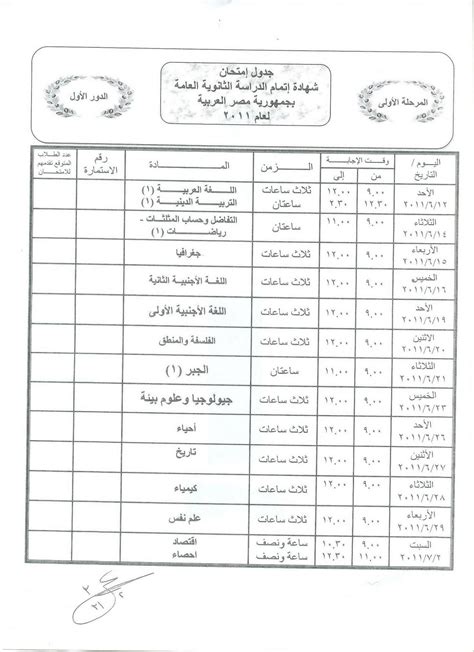 جدول إمتحان
شهادة إتمام الدراسة الثانوية العامة
بجمهورية مصر العربية
لعام ٢٠١١
المرحلة الأولى
الدور الأول
اليوم / التاريخ | وقت الإجابة من | إلى | الزمن | المادة | رقم الاستمارة | عدد الطلاب المتوقع تقدمهم للامتحان
الأحد ٢٠١١/٦/١٢ | ٩,٠٠ | ١٢,٠٠ | ثلاث ساعات | اللغة العربية (١)
١٢,٣٠ | ٢,٣٠ | ساعتان | التربية الدينية (١)
الثلاثاء ٢٠١١/٦/١٤ | ٩,٠٠ | ١١,٠٠ | ساعتان | التفاضل وحساب المثلثات - رياضيات (١)
الأربعاء ٢٠١١/٦/١٥ | ٩,٠٠ | ١٢,٠٠ | ثلاث ساعات | جغرافيا
الخميس ٢٠١١/٦/١٦ | ٩,٠٠ | ١٢,٠٠ | ثلاث ساعات | اللغة الأجنبية الثانية
الأحد ٢٠١١/٦/١٩ | ٩,٠٠ | ١٢,٠٠ | ثلاث ساعات | اللغة الأجنبية الأولى
الاثنين ٢٠١١/٦/٢٠ | ٩,٠٠ | ١٢,٠٠ | ثلاث ساعات | الفلسفة والمنطق
الثلاثاء ٢٠١١/٦/٢١ | ٩,٠٠ | ١١,٠٠ | ساعتان | الجبر (١)
الخميس ٢٠١١/٦/٢٣ | ٩,٠٠ | ١٢,٠٠ | ثلاث ساعات | جيولوجيا وعلوم بيئة
الأحد ٢٠١١/٦/٢٦ | ٩,٠٠ | ١٢,٠٠ | ثلاث ساعات | أحياء
الأثنين ٢٠١١/٦/٢٧ | ٩,٠٠ | ١٢,٠٠ | ثلاث ساعات | تاريخ
الثلاثاء ٢٠١١/٦/٢٨ | ٩,٠٠ | ١٢,٠٠ | ثلاث ساعات | كيمياء
الأربعاء ٢٠١١/٦/٢٩ | ٩,٠٠ | ١٢,٠٠ | ثلاث ساعات | علم نفس
السبت ٢٠١١/٧/٢ | ٩,٠٠ | ١٠,٣٠ | ساعة ونصف | اقتصاد
١١,٠٠ | ١٢,٣٠ | ساعة ونصف | احصاء